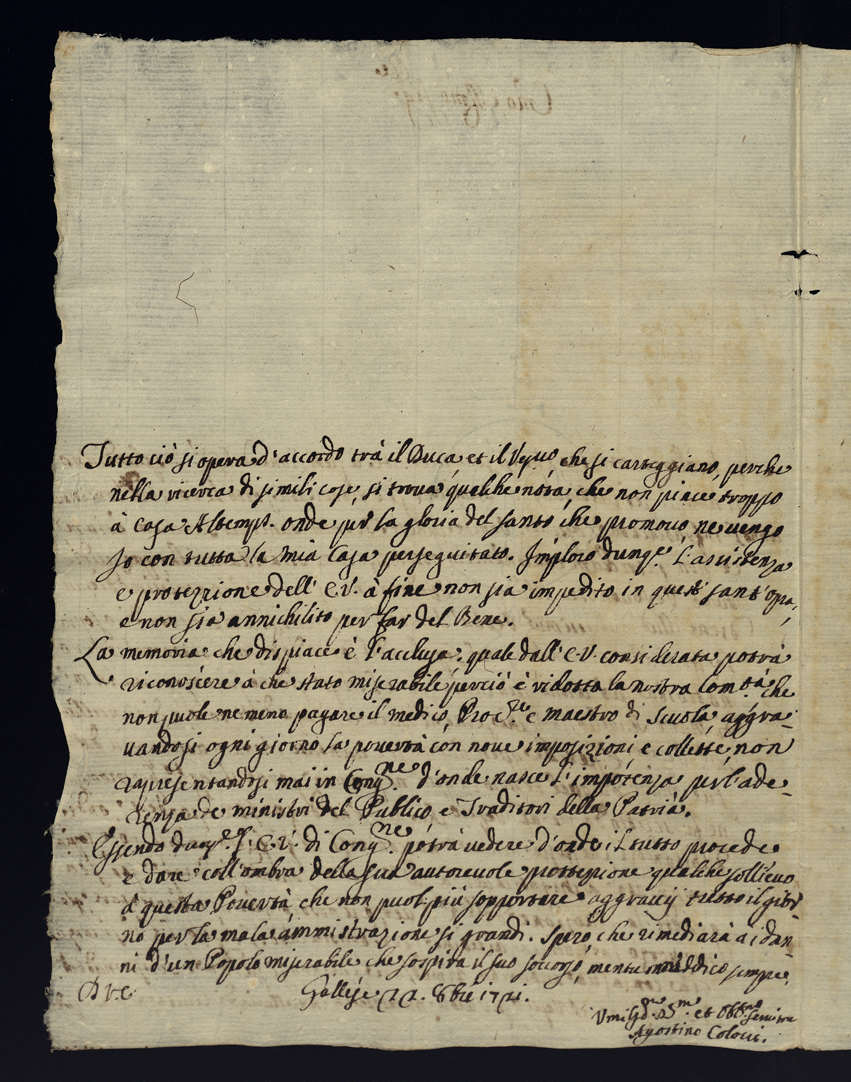 Tutto ciò si opera d'accordo trà il Duca et il Vesuo che si carteggiano, perche
nella ricerca di simili cose, si trova qualche nota, che non piace troppo
à Casa Altemps. onde per la gloria del santo, che promovo ne vengo
Io con tutta la mia Casa perseguitato. Imploro dunqe. l'assistenza
e protezzione dell' E.V. à fine non sia impedito in questi sant'opra,
e non sia annichilito per far del Bene.
La memoria che dispiace è l'acclusa. quale dall' E.V. considerata potrà
riconoscere a che stato miserabile perciò è ridotta la nostra Comtà che
non puole ne meno pagare il medico, Procre. e maestro di Scuola, aggra-
vandosi ogni giorno la povertà con nove imposizioni e collette, non
rapresentandosi mai in Congne. d'onde nasce l'impotenza per l'ade-
renza de ministri del Publico, e Traditori della Patria.
Essendo dunqe l'E.V. di Congne potrà vedere d'onde il tutto procede
e dare coll'ombra della sua autorevole protezione qualche sollievo
à questa Povertà che non puol più sopportare aggravij tutto il
no per la mala amministrazione si grandi. Spero che rimediarà a i dan-
ni d'un Popolo miserabile che sospira il suo socorso, mentre dico sempre,
D.V.E. Gallese 22. 8bre 1721.
Umilmo. Dmo. et Obbmo. Servitre
Agostino Colocci.